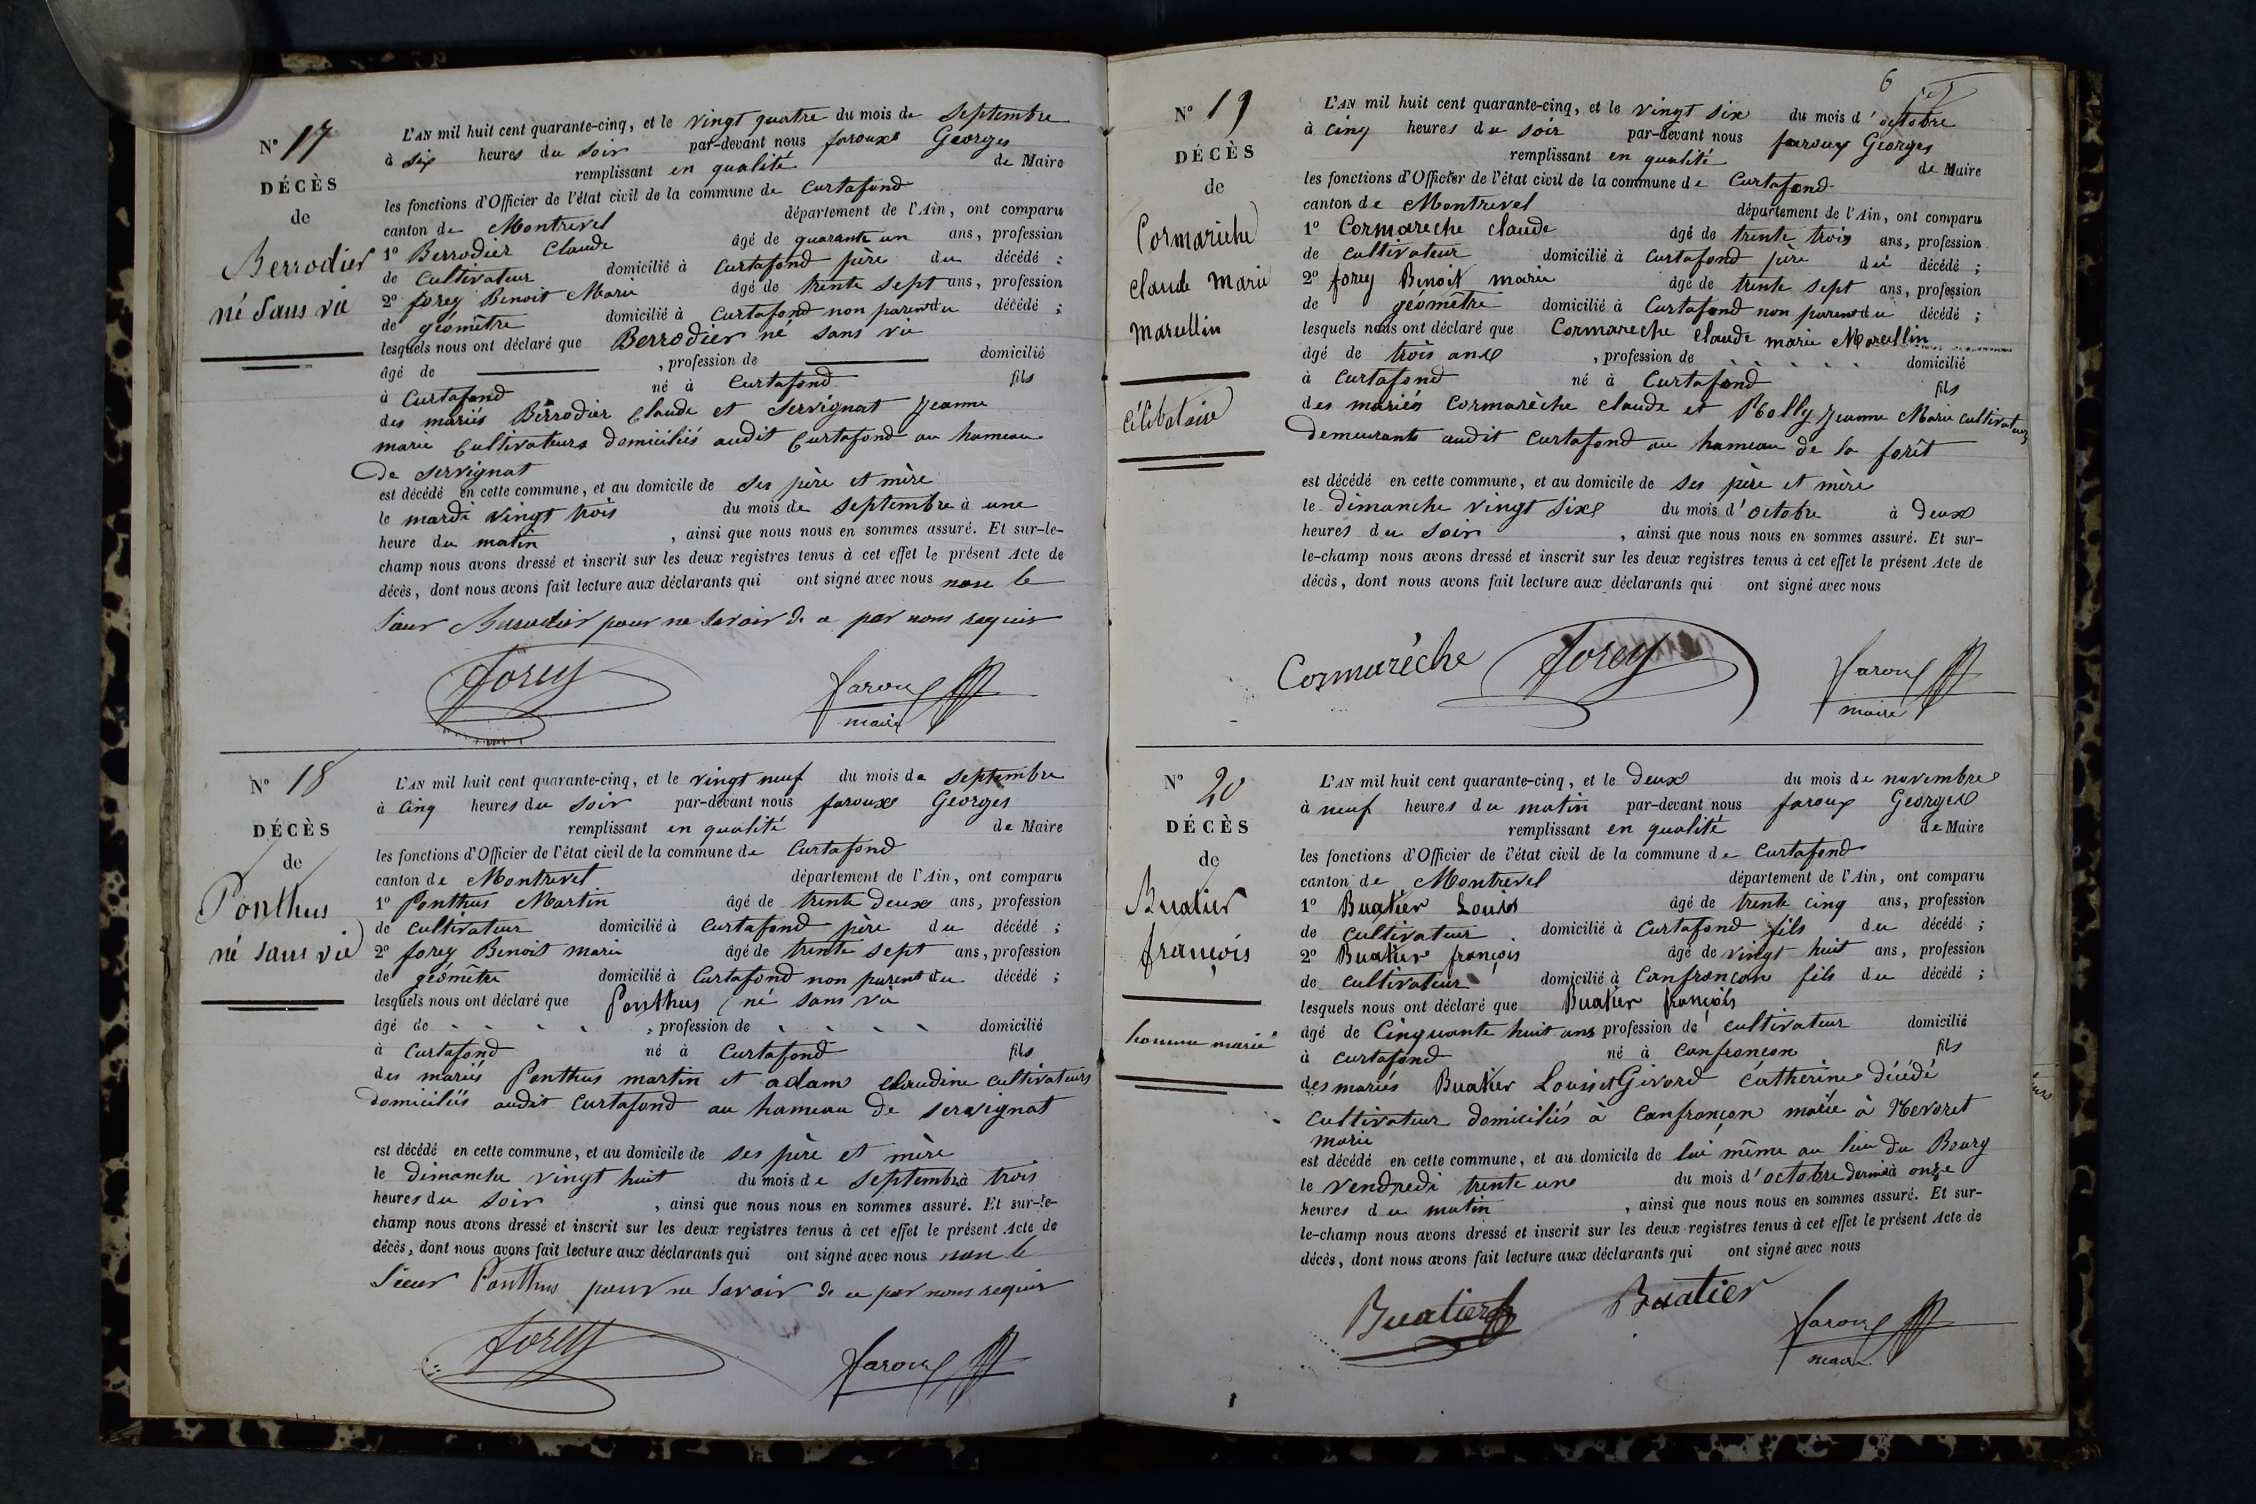 N° 17
DÉCÈS
de
Berrodier
né sans vie
L'AN mil huit cent quarante-cinq, et le vingt quatre du mois de septembre
à six heures du soir par-devant nous faroux Georges
remplissant en qualité de Maire
les fonctions d'Officier de l'état civil de la commune de Curtafond
canton de Montrevel département de l'Ain, ont comparu
1° Berrodier Claude âgé de quarante un ans, profession
de cultivateur domicilié à Curtafond père du décédé ;
2° forey Benoit Marie âgé de trente sept ans, profession
de géomètre domicilié à Curtafond non parent du décédé ;
lesquels nous ont déclaré que Berrodier né sans vie
âgé de , profession de domicilié
à Curtafond né à Curtafond fils
des mariés Berrodier Claude et Servignat Jeanne
marie Cultivateurs domiciliés audit Curtafond au hameau
de servignat
est décédé en cette commune, et au domicile de ses père et mère
le mardi vingt trois du mois de septembre à une
heure du matin , ainsi que nous nous en sommes assuré. Et sur-le-
champ nous avons dressé et inscrit sur les deux registres tenus à cet effet le présent Acte de
décès, dont nous avons fait lecture aux déclarants qui ont signé avec nous non le
sieur Berrodier pour ne savoir de ce par nous requis
forey
faroux
maire
N° 18
DÉCÈS
de
Ponthus
né sans vie
L'AN mil huit cent quarante-cinq, et le vingt neuf du mois de septembre
à cinq heures du soir par-devant nous faroux Georges
remplissant en qualité de Maire
les fonctions d'Officier de l'état civil de la commune de Curtafond
canton de Montrevel département de l'Ain, ont comparu
1° Ponthus Martin âgé de trente deux ans, profession
de cultivateur domicilié à Curtafond père du décédé ;
2° forey Benoit marie âgé de trente sept ans, profession
de géomètre domicilié à Curtafond non parent du décédé ;
lesquels nous ont déclaré que Ponthus né sans vie
âgé de , profession de domicilié
à Curtafond né à Curtafond fils
des mariés Ponthus martin et adam claudine cultivateurs
domiciliés audit Curtafond au hameau de servignat
est décédé en cette commune, et au domicile de ses père et mère
le dimanche vingt huit du mois de septembre à trois
heures du soir , ainsi que nous nous en sommes assuré. Et sur-le-
champ nous avons dressé et inscrit sur les deux registres tenus à cet effet le présent Acte de
décès, dont nous avons fait lecture aux déclarants qui ont signé avec nous non le
sieur Ponthus pour ne savoir de ce par nous requis
forey
faroux
6
N° 19
DÉCÈS
de
Cormarèche
claude marie
marcellin
célibataire
L'AN mil huit cent quarante-cinq, et le vingt six du mois d'octobre
à cinq heures du soir par-devant nous faroux Georges
remplissant en qualité de Maire
les fonctions d'Officier de l'état civil de la commune de Curtafond
canton de Montrevel département de l'Ain, ont comparu
1° Cormarèche claude âgé de trente trois ans, profession
de cultivateur domicilié à Curtafond père du décédé ;
2° forey Benoit marie âgé de trente sept ans, profession
de géomètre domicilié à Curtafond non parent du décédé ;
lesquels nous ont déclaré que Cormarèche claude marie Marcellin
âgé de trois ans , profession de domicilié
à Curtafond né à Curtafond fils
des mariés Cormarèche claude et Jeanne Marie cultivateurs
demeurants audit Curtafond au hameau de la forêt
est décédé en cette commune, et au domicile de ses père et mère
le dimanche vingt six du mois d'octobre à deux
heures du soir , ainsi que nous nous en sommes assuré. Et sur-
le-champ nous avons dressé et inscrit sur les deux registres tenus à cet effet le présent Acte de
décès, dont nous avons fait lecture aux déclarants qui ont signé avec nous
Cormarèche
forey
faroux
maire
N° 20
DÉCÈS
de
Buatier
françois
homme marié
L'AN mil huit cent quarante-cinq, et le deux du mois de novembre
à neuf heures du matin par-devant nous faroux Georges
remplissant en qualité de Maire
les fonctions d'Officier de l'état civil de la commune de Curtafond
canton de Montrevel département de l'Ain, ont comparu
1° Buatier Louis âgé de trente cinq ans, profession
de cultivateur domicilié à Curtafond fils du décédé ;
2° Buatier françois âgé de vingt huit ans, profession
de cultivateur domicilié à Confrançon fils du décédé ;
lesquels nous ont déclaré que Buatier françois
âgé de Cinquante huit ans profession de cultivateur domicilié
à Curtafond né à Confrançon fils
des mariés Buatier Louis et Givord Catherine décédé
cultivateur domiciliés à Confrançon marié à Nevoret
marie
est décédé en cette commune, et au domicile de lui même au lieu du Bourg
le vendredi trente une du mois d'octobre dernier à onze
heures du matin , ainsi que nous nous en sommes assuré. Et sur-
le-champ nous avons dressé et inscrit sur les deux registres tenus à cet effet le présent Acte de
décès, dont nous avons fait lecture aux déclarants qui ont signé avec nous
Buatier
Buatier
faroux
maire